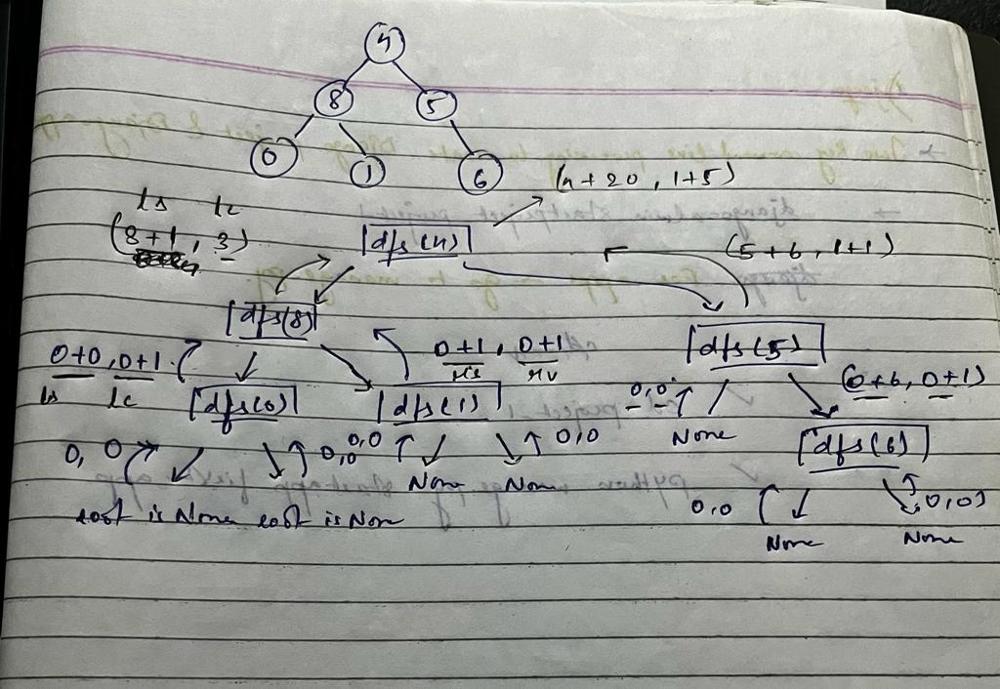 4
8 5
0 1 6
(4+20, 1+5)
ls lc
(8+1, 3)
dfs(4)
(5+6, 1+1)
dfs(8)
0+0, 0+1
ls lc
0+1, 0+1
rs
dfs(5)
(0+6, 0+1)
dfs(0)
dfs(1)
0,0
None
dfs(6)
0, 0
0,0
0,0
0,0
None None
root is None root is None
0,0
0,0
None
None